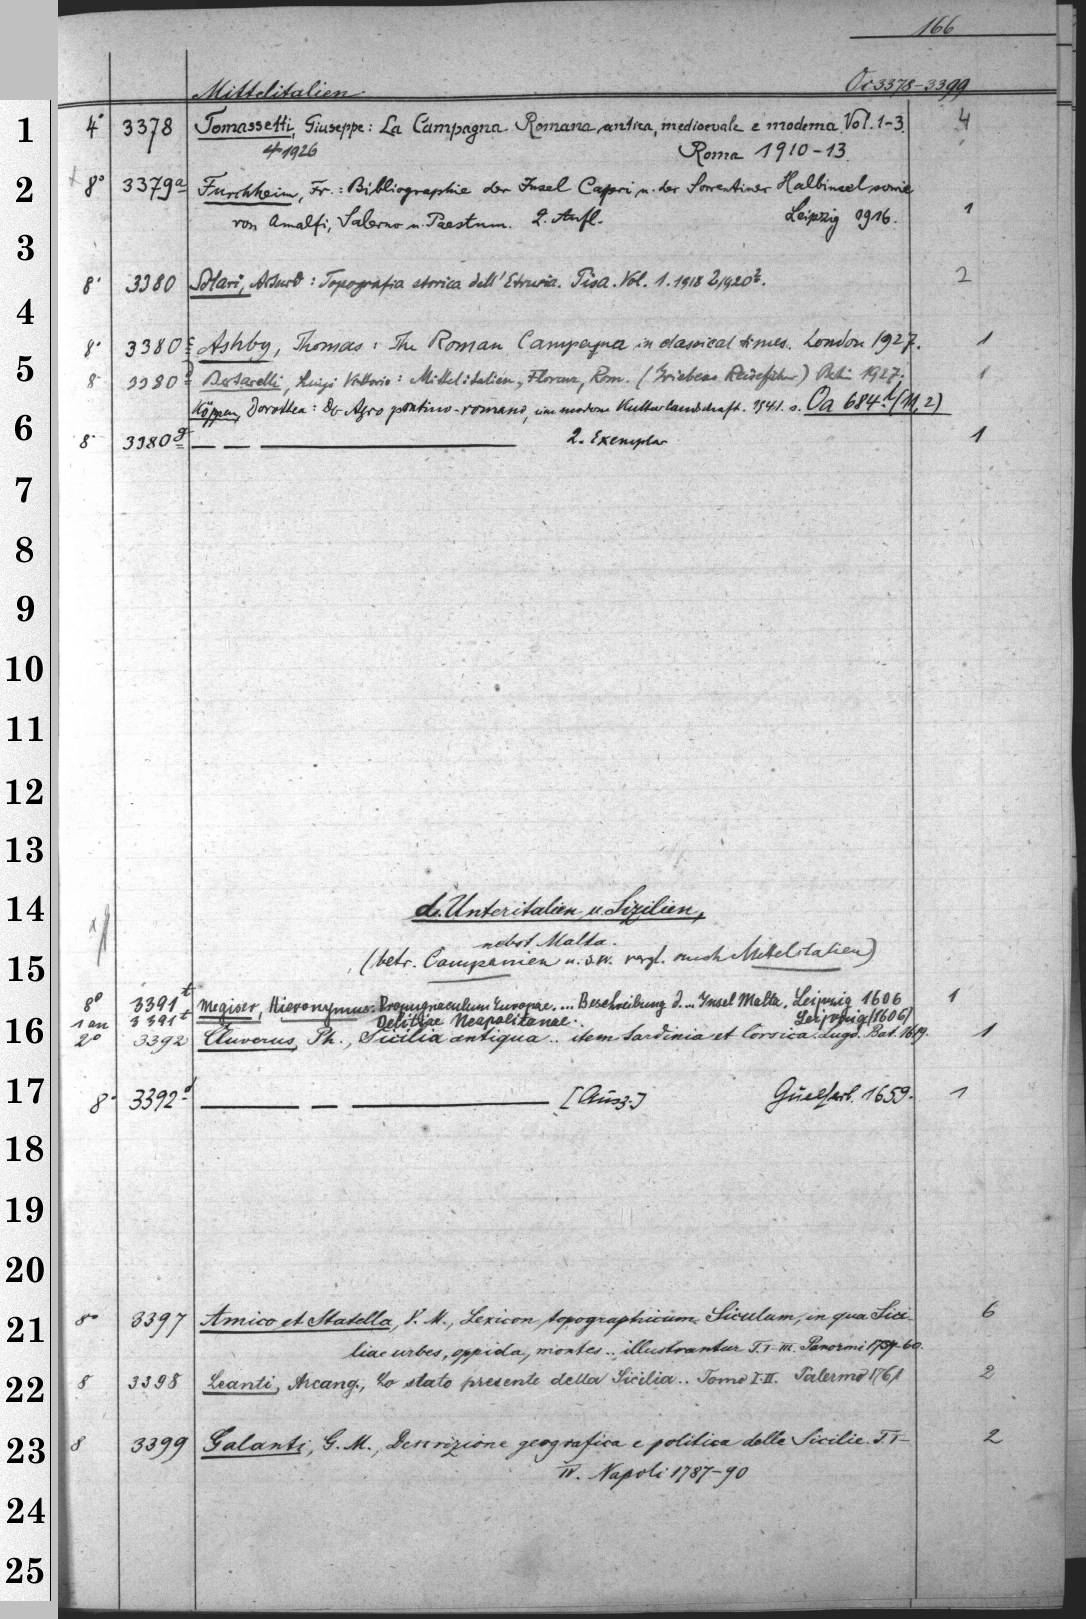 166
Mittelitalien Oc 3378-3399
1 4° 3378 Tomassetti, Giuseppe: La Campagna Romana antica, medioevale e moderna. Vol. 1-3. 4
4 1926 Roma 1910-13.
2 8° 3379a Furchheim, Fr.: Bibliographie der Insel Capri u. der Sorrentiner Halbinsel sowie
von Amalfi, Salerno u. Paestum. 2. Aufl. Leipzig 1916. 1
3
8° 3380 Solari, : Topografia storica dell'Etruria. Pisa. Vol. 1. 1918 2, 1920 2
4
8° 3380 Ashby, Thomas: The Roman Campagna in classical times. London 1927. 1
5 8° 3380 Bertarelli, Luigi Vittorio: Mittelitalien, Florenz, Rom. (Griebens Reiseführer) 1927. 1
Köppen, Dorothea: Der Agro pontino-romano, eine moderne Kulturlandschaft. 1941. s. Oa 684 (N, 2)
6 8° 3380g — — — 2. Exemplar 1
7
8
9
10
11
12
13
14 d. Unteritalien u. Sizilien,
nebst Malta.
15 (betr. Campanien u.s.w. vergl. auch Mittelitalien)
8° 3391t Megiser, Hieronymus: Propugnaculum Europae.... Beschreibung d... Insel Malta. Leipzig 1606 1
1 an 3391t Delitiae Neapolitanae. Leipzig (1606)
16 2° 3392 Cluverus, Ph., Sicilia antiqua.. item Sardinia et Corsica. Lugd. Bat. 1619. 1
17 8° 3392d — — — [Ausz.] Guelferb. 1659. 1
18
19
20
21 8° 3397 Amico et Statella, V. M., Lexicon topographicum Siculum, in qua Sici- 6
liae urbes, oppida, montes.. illustrantur T. I-III. Panormi 1757-60.
22 8 3398 Leanti, Arcang., Lo stato presente della Sicilia.. Tomo I-II. Palermo 1761 2
23 8 3399 Galanti, G. M., Descrizione geografica e politica delle Sicilie. T. I- 2
IV. Napoli 1787-90
24
25